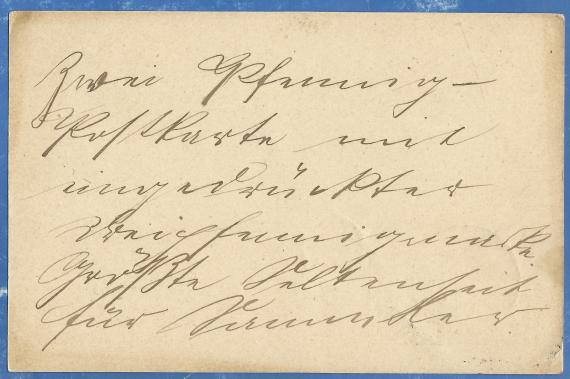 Zwei Pfennig-
Postkarte mit
ungedrückter
Dreipfennigmarke
Größte Seltenheit
für Sammler